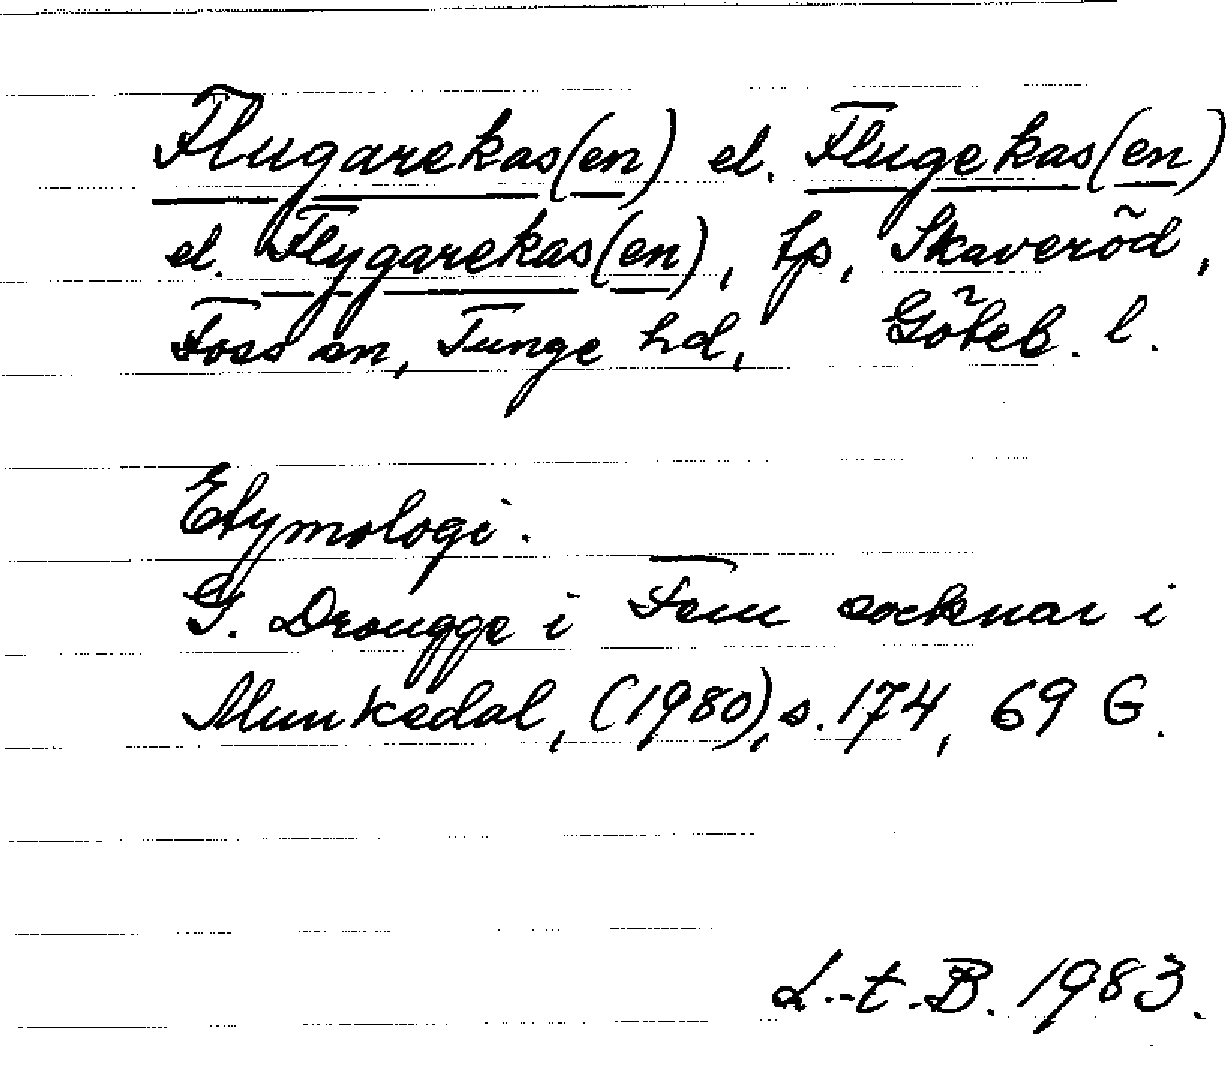 Flugarekas(en) el. Flugekas(en)
el. Flygarekas(en), tp, Skaveröd,
Foss sn, Tunge hd, Göteb. l.
Etymologi.
G. Drougge i Fem socknar i
Munkedal, (1980), s. 174, 69 G.
L.-t. B. 1983.